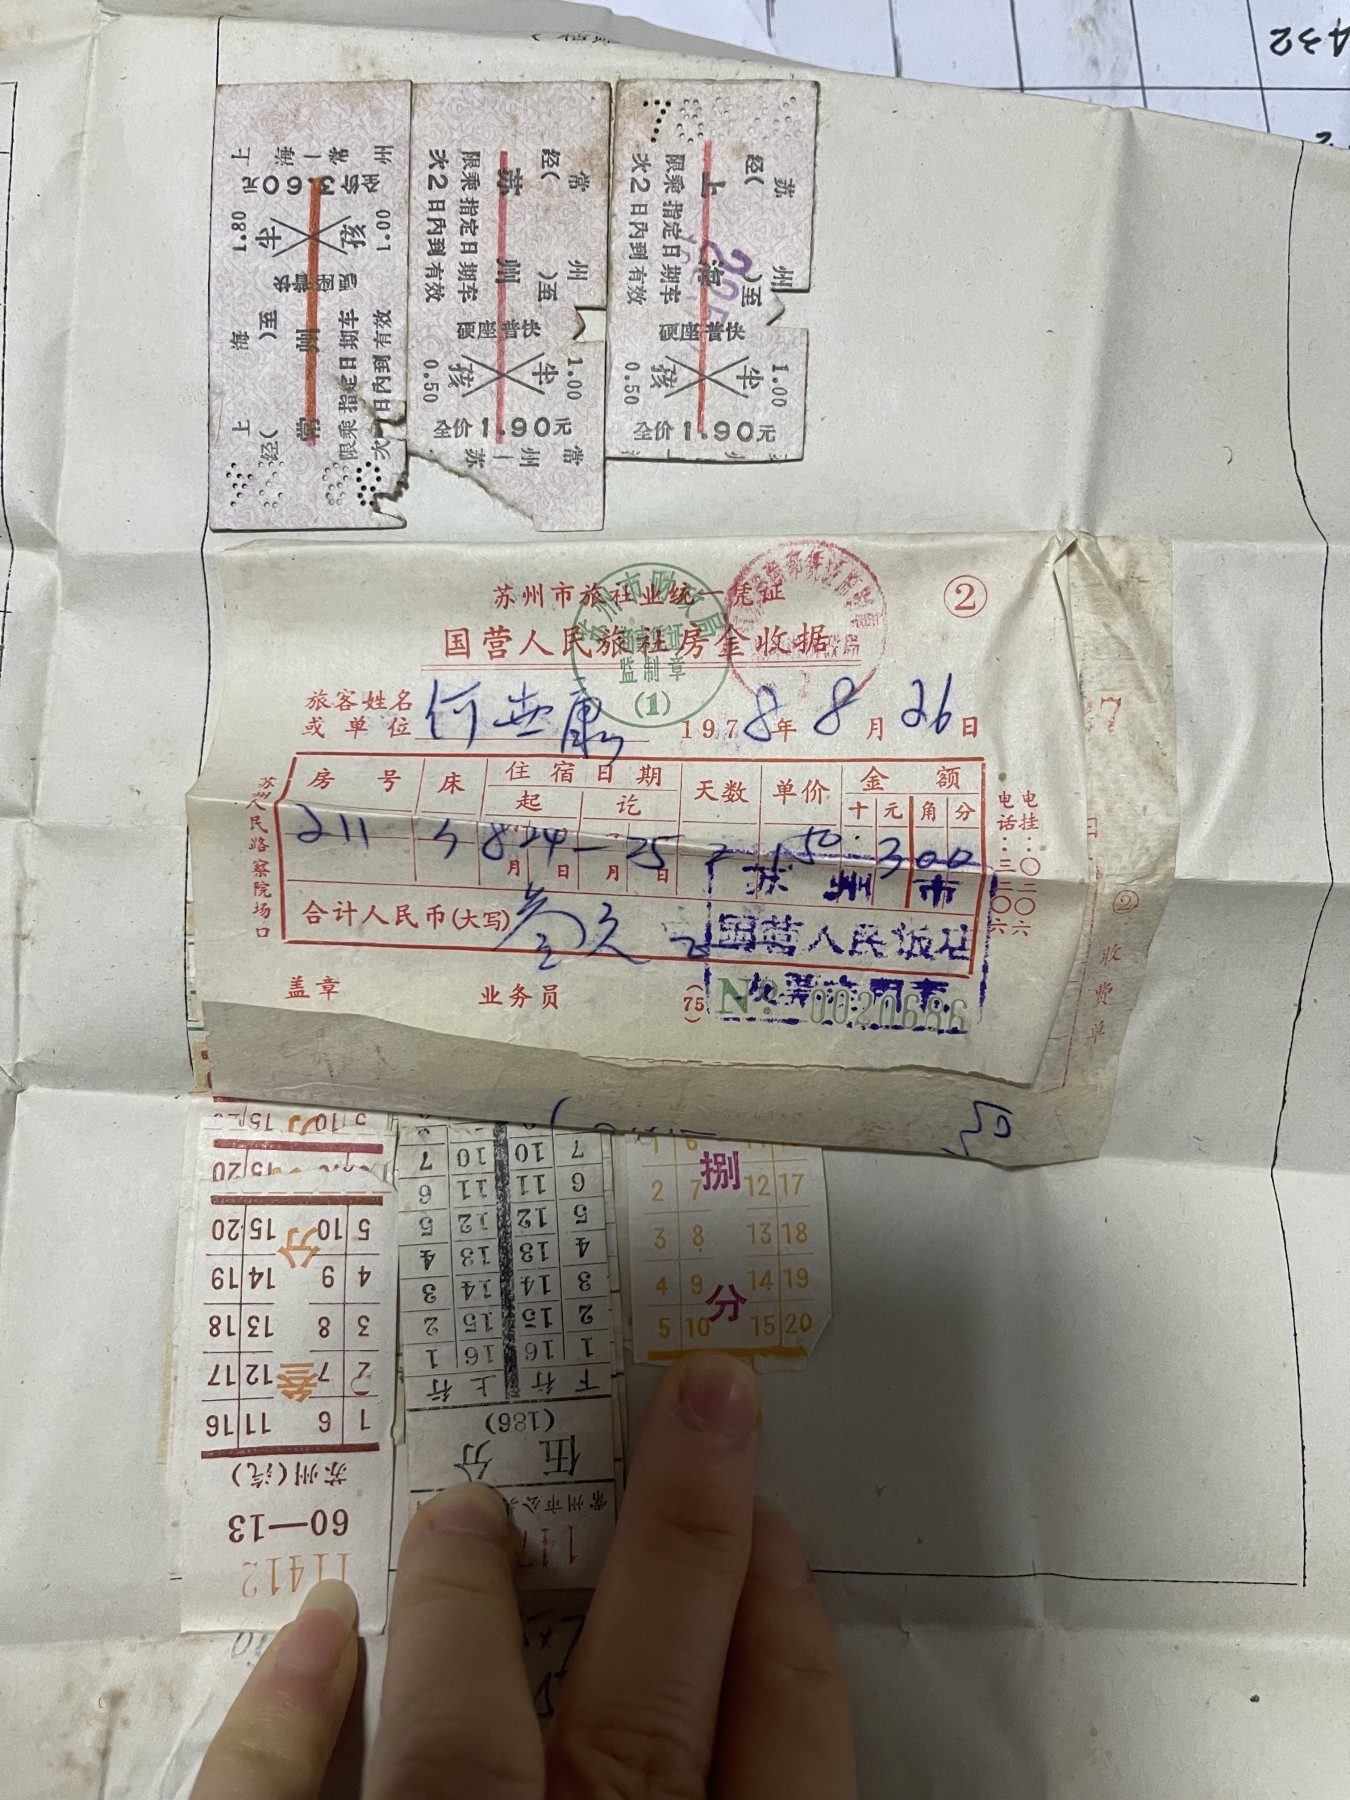 432
上海—常州
全价3.60元
半 孩
1.80 1.00
硬座普快
上海
经( )至
常州
限乘指定日期车
次 日内到有效
常州
经( )至
苏州
限乘指定日期车
次2日内到有效
硬座普快
孩 半
0.50 1.00
全价1.90元
常州—苏
7
苏州
经( )至
上海
限乘指定日期车
次2日内到有效
硬座普快
孩 半
0.50 1.00
全价1.90元
苏州市旅社业统一凭证
②
国营人民旅社房金收据
苏州市财政局
监制章
(1)
旅客姓名
或单位
何世康
1978年8月26日
房号 床 住宿日期 天数 单价 金额
起 讫 十 元 角 分
211 3 8 24—25 2 1.50 3 0 0
月 日 月 日
合计人民币(大写) 叁元
苏州市
国营人民饭店
盖章 业务员 (75) No 0020686
苏州人民路察院场口
电话:三三〇六
电挂:〇二〇六
7
日
② 收费单
5 10 15 20
15 20
5 10 15 20
4 9 14 19
3 8 13 18
2 7 12 17
1 6 11 16
叁分
苏州(汽)
60—13
11412
7 10 10 7
6 11 11 6
5 12 12 5
4 13 13 4
3 14 14 3
2 15 15 2
1 16 16 1
下行 上行
(186)
伍分
常州市公
117
捌分
1 6
2 7 12 17
3 8 13 18
4 9 14 19
5 10 15 20